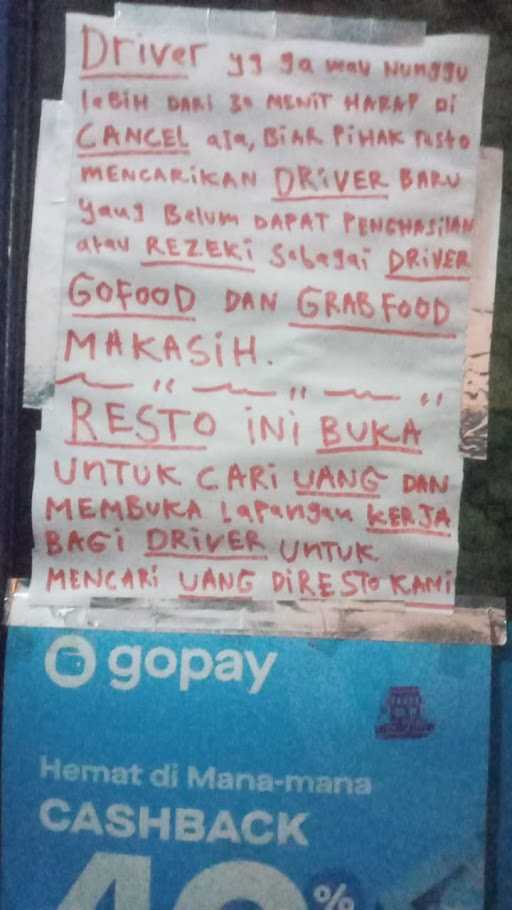 Driver yg ga mau Nunggu
leBiH DARi 30 MENiT HARAP Di
CANCEL aja, BiAR PiHAK resto
MENCARiKAN DRiVER BARU
yang Belum DAPAT PENGHASiLAN
atau REZEKi Sebagai DRiVER
GOFOOD DAN GRABFOOD
MAKASiH.
RESTO iNi BUKA
UNTUK CARi UANG DAN
MEMBUKA Lapangan KERJA
BAGi DRiVER UNTUK
MENCARi UANG DiRESTO KAMi
gopay
Hemat di Mana-mana
CASHBACK
40%